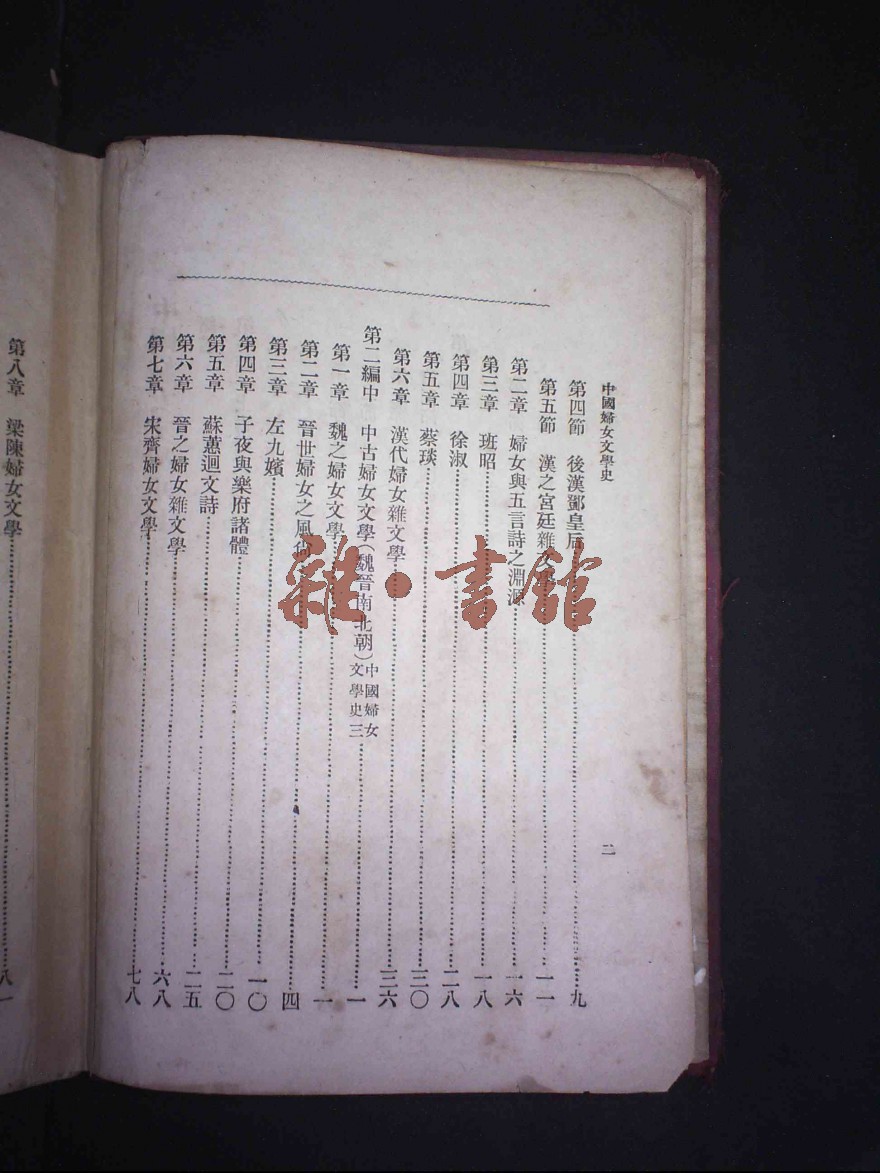 中國婦女文學史
二
第四節 後漢鄧皇后九
第五節 漢之宮廷雜文學一一
第二章 婦女與五言詩之淵源一六
第三章 班昭一八
第四章 徐淑二八
第五章 蔡琰三〇
第六章 漢代婦女雜文學三六
第二編中 中古婦女文學(魏晉南北朝)中國婦女文學史三一
第一章 魏之婦女文學一
第二章 晉世婦女之風尙四
第三章 左九嬪一〇
第四章 子夜與樂府諸體二〇
第五章 蘇蕙迴文詩二五
第六章 晉之婦女雜文學六八
第七章 宋齊婦女文學七八
第八章 梁陳婦女文學八一
雜·書館